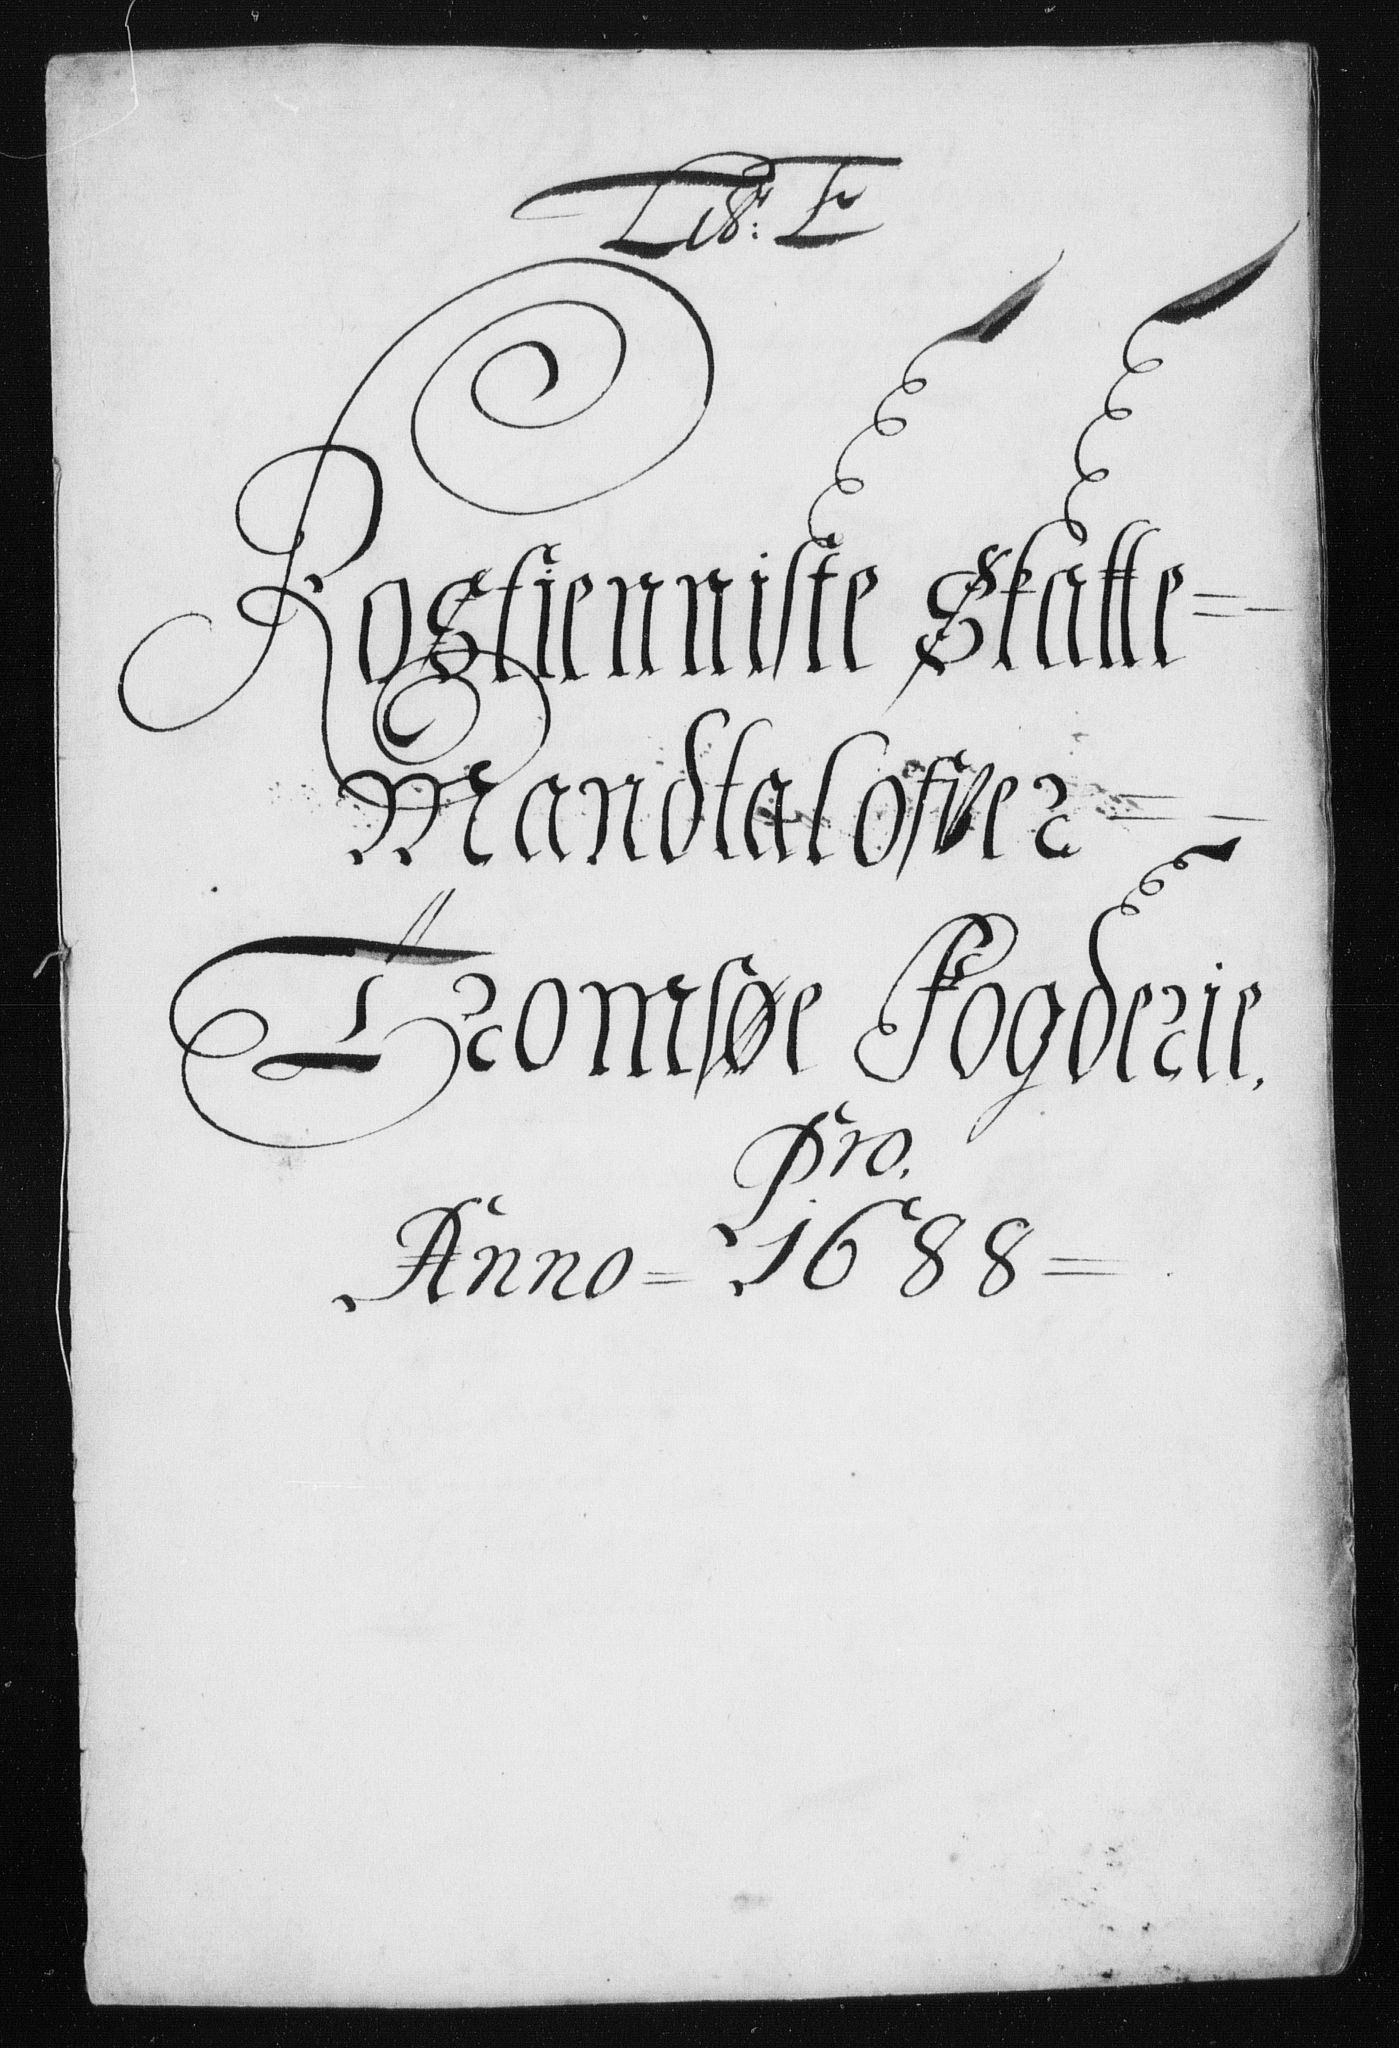 Lit: E
Rostienniste Skatte=
Mandtal ofver=
Tromsøe Fogderie.
Pro.
Anno= 1688=